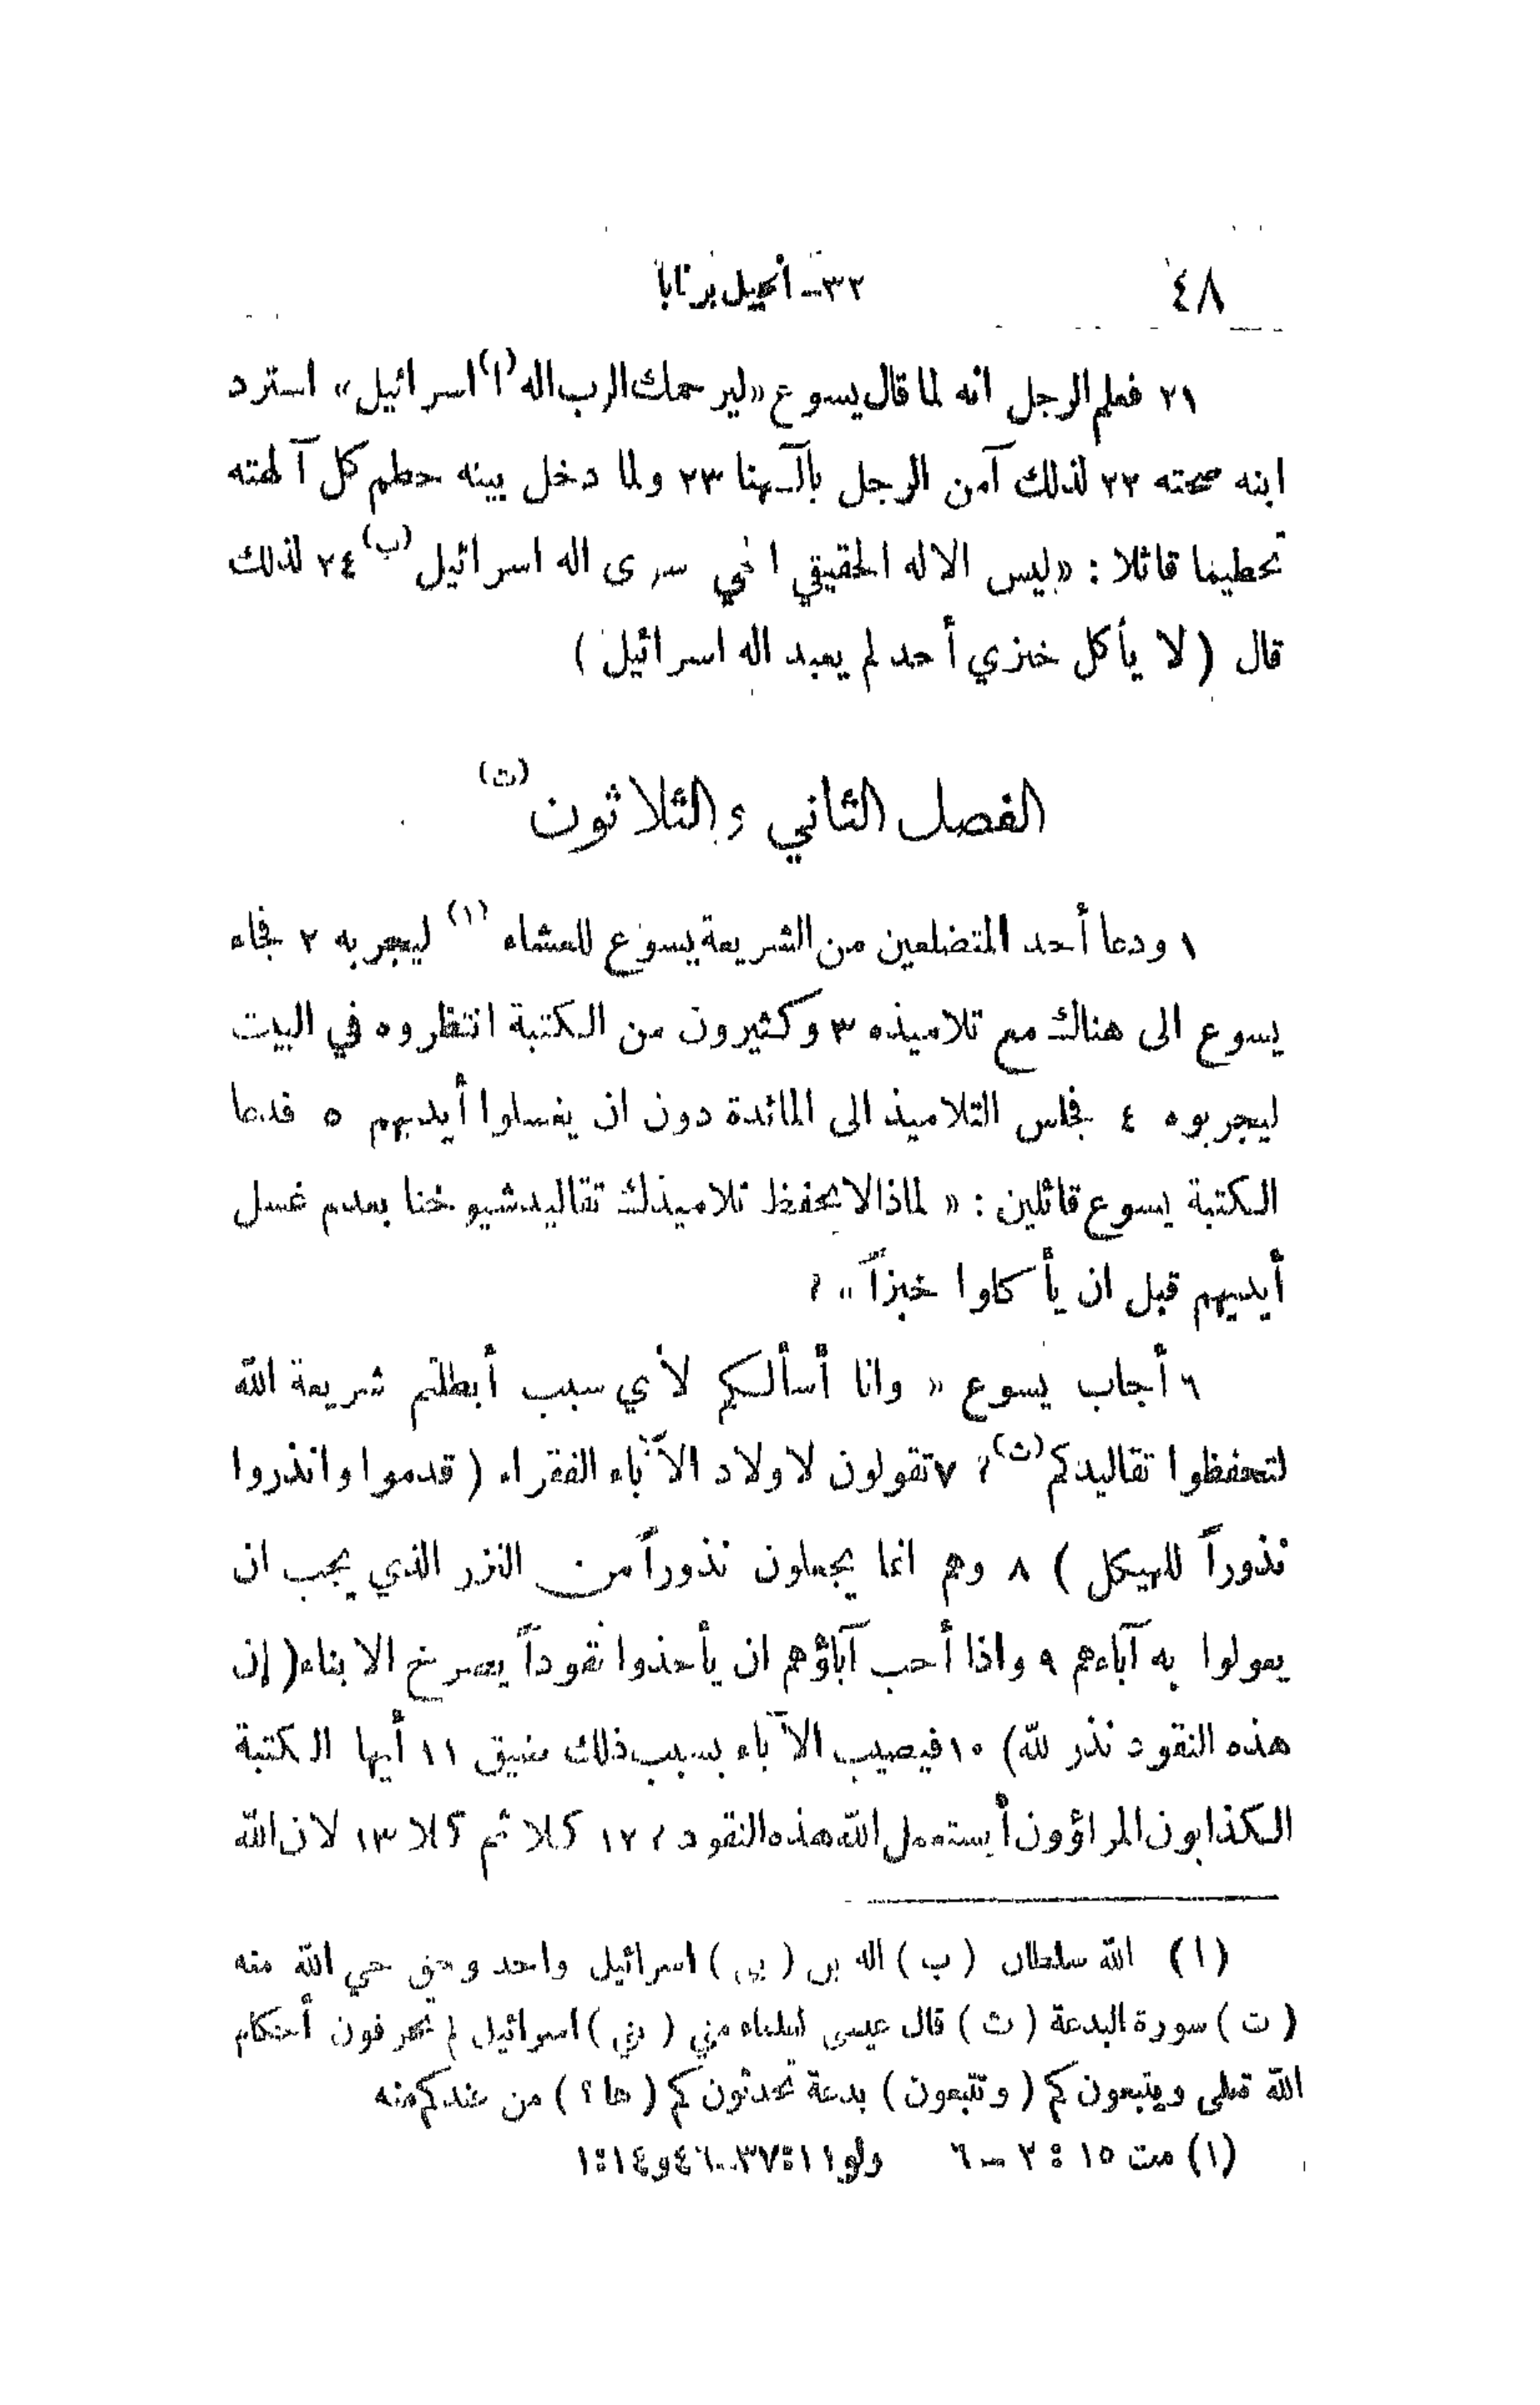 ٤٨
٣٢ــ انجيل برنابا
٢١ فعلم الرجل انه لما قال يسوع «ليرحمك الرب اله (ا) اسرائيل» استرد
ابنه صحته ٢٢ لذلك آمن الرجل بآلهنا ٢٣ ولما دخل بيته حطم كل آلهته
تحطيما قائلا : «ليس الاله الحقيقي الحي سوى اله اسرائيل (ب) ٢٤ لذلك
قال ( لا يأكل خبزي أحد لم يعبد اله اسرائيل )
الفصل الثاني والثلاثون (ت)
١ ودعا أحد المتضلعين من الشريعة يسوع للعشاء (١) ليجربه ٢ فجاء
يسوع الى هناك مع تلاميذه ٣ وكثيرون من الكتبة انتظروه في البيت
ليجربوه ٤ فجلس التلاميذ الى المائدة دون ان يغسلوا أيديهم ٥ فدعا
الكتبة يسوع قائلين : « لماذا لا يحفظ تلاميذك تقاليد شيوخنا بعدم غسل
أيديهم قبل ان يأكلوا خبزاً » ؟
٦ أجاب يسوع « وانا أسألكم لأي سبب أبطلتم شريعة الله
لتحفظوا تقاليدكم (ث) ؟ ٧ تقولون لاولاد الآباء الفقراء ( قدموا وانذروا
نذوراً للهيكل ) ٨ وهم انما يجعلون نذوراً من النزر الذي يجب ان
يعولوا به آباءهم ٩ واذا أحب آباؤهم ان يأخذوا نقوداً يصرخ الابناء ( إن
هذه النقود نذر لله ) ١٠ فيصيب الآباء بسبب ذلك ضيق ١١ أيها الكتبة
الكذابون المراؤون أيستعمل الله هذه النقود ؟ ١٢ كلا ثم كلا ١٣ لان الله
(ا) الله سلطان (ب) اله بن (بي) اسرائيل واحد وحق حي الله منه
(ت) سورة البدعة (ث) قال عيسى لعلماء مني (بني) اسرائيل لم تحرفون أحكام
الله قبلى ويتبعون كم (وتتبعون) بدعة تحدثون كم (ها؟) من عندكم منه
(١) مت ١٥ : ٢ ــ ٦ ولو ١١:٣٧ــ٤٦ و١٤:١